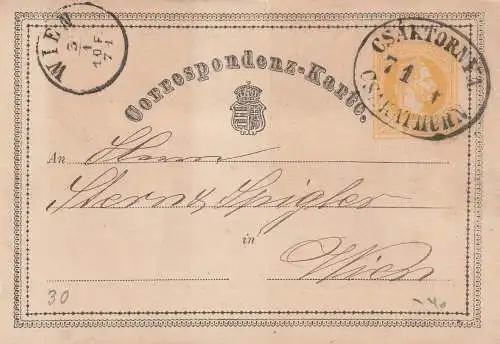 WIEN
3/1
10 F
71
CSÁKTORNYA
7 1
CSAKATHURN
Correspondenz-Karte.
An Herrn
Stern & Spigler
in
Wien
30